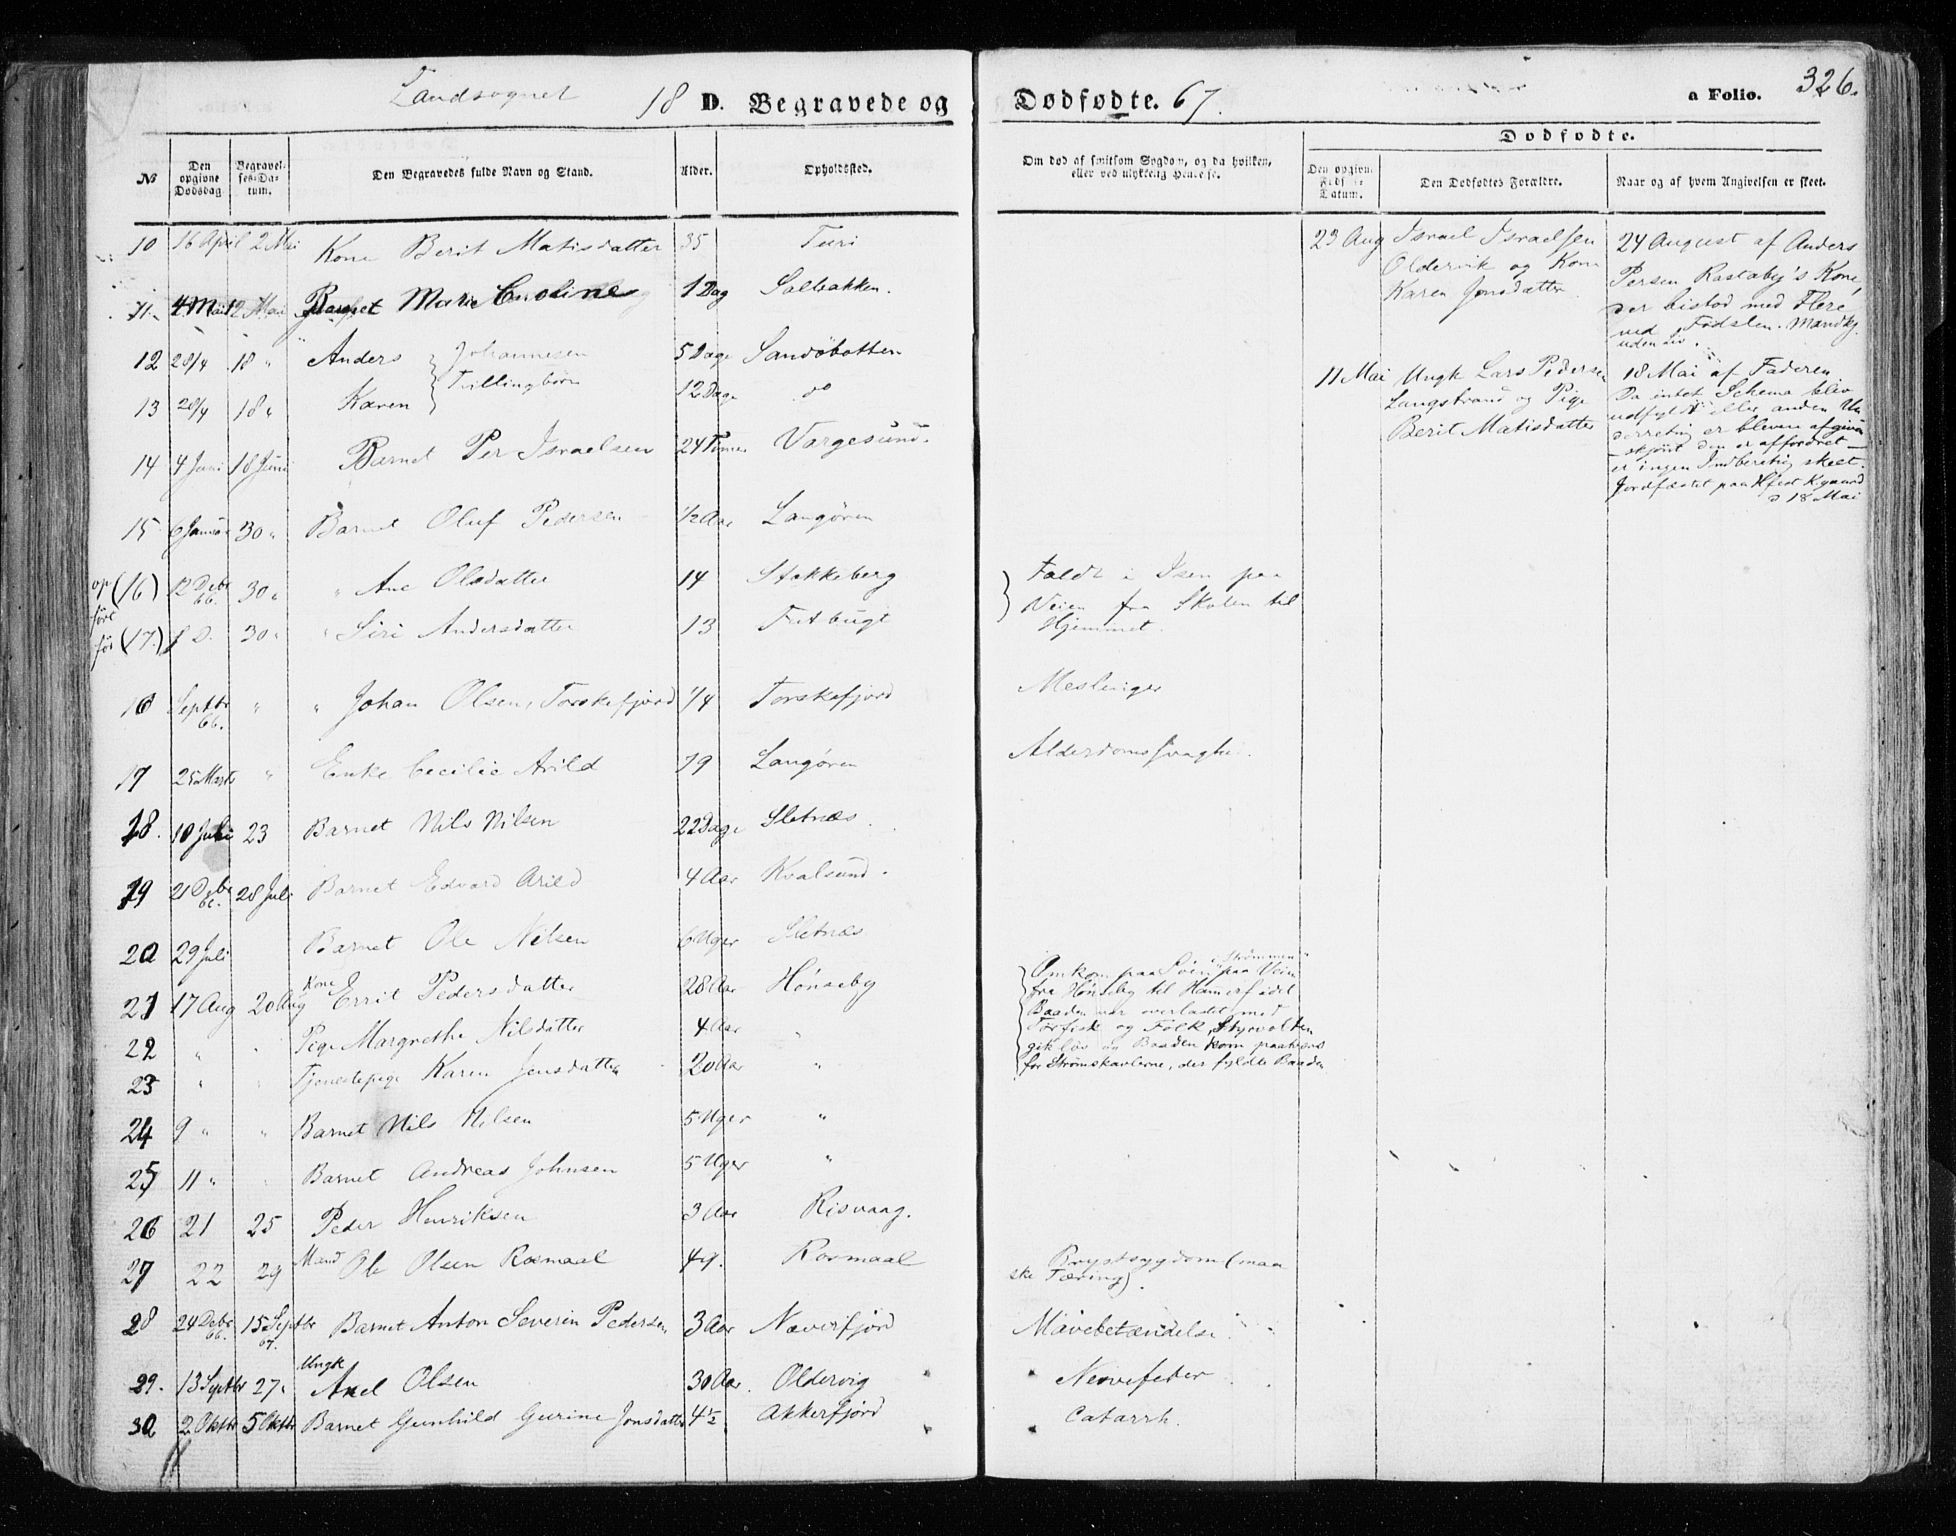 Landsognet 18 D. Begravede og Dødfødte. 67. a Folio. 326.
Dødfødte.
No Den opgivne Dødsdag Begravelses-Datum. Den Begravedes fulde Navn og Stand. Alder. Opholdssted. Om død af smitsom Sygdom, og da hvilken, eller ved ulykkelig Hendelse. Den opgivne Føds Datum. Den Dødfødtes Forældre. Naar og af hvem Angivelsen er skeet.
10 16 April 2 Mai Kone Berit Matisdatter 35 Turi
11. 4 Mai 12 Mai Barnet Marie Caroline 1 Dag Salbakken.
12 28/4 18 " Anders Johannesen 5 Dage Sandøbotten
Tvillingbørn
13 28/4 18 " Karen 12 Dage do
14 4 Juni 18 Juni Barnet Per Israelsen 24 Timer Vargesund.
15 6 Januar 30 " Barnet Oluf Pedersen ½ Aar Langøren
op (16) 12 Debr 66. 30 " " Ane Olsdatter 14 Stakkeberg
ført
før (17.) s D. 30 " " Siri Andersdatter 13
Faldt i Isen paa
Veien fra Skolen til
Hjemmet.
16 Septbr 66. " " Johan Olsen, Torskefjord 1/4 Torskefjord Meslinger
17 25 Marts " Enke Cecilie Arild 79 Langøren Alderdomssvaghed.
18. 10 Juli 23 Barnet Nils Nilsen 22 Dage Sletnæs
19 21 Debr 66. 28 Juli Barnet Edvard Arild 4 Aar Kvalsund.
20 29 Juli Barnet Ole Nilsen 6 Uger Sletnæs
21 17 Aug 20 Aug Kone Errit Pedersdatter 28 Aar Hønseby
22 " " Pige Margrethe Nilsdatter 4 Aar "
23 " " Tjenestepige Karen Jensdatter 20 Aar "
i Strømmen
Omkom paa Søen paa Veien
fra Hønseby til Hamerfest
Baaden var overlastet med
Tørfisk og Folk, Styrvolten
gik løs og Baaden kom paatvers
for Strømskavlerne, der fyldte Baaden
24 9 " " Barnet Nils Nilsen 5 Uger "
25 11 " Barnet Andreas Johnsen 5 Uger "
26 21 25 Peder Henriksen 3 Aar Risvaag.
27 22 29 Mand Ole Olsen Rosmaal 49. Rosmaal Brystsygdom (maa
ske Tæring).
28 24 Debr 66. 15 Septbr 67. Barnet Anton Severin Pedersen 3 Aar Næverfjord Mavebetændelse
29. 13 Septbr 27 " Ungk Axel Olsen 30 Aar. Oldervig Nervefeber
30 2 Oktbr 5 Oktbr Barnet Gunhild Gurine Jonsdatter 4½ Akkerfjord Catarrh.
23 Aug Israel Israelsen
Oldervik og Kone
Karen Jonsdatter
24 August af Anders
Persen Rastaby's Kone,
der bistod med Flere
ved Fødslen. Mandkj.
uden Liv.
11 Mai Ungk Lars Pedersen
Langstrand og Pige
Berit Matisdatter
18 Mai af Faderen
Da intet Schema blev
udfyldt eller anden Un
derretng er bleven afgiven
– skjønt den er affordret –
er ingen Indberetng skeet.
Jordfæstet paa Hfest Kgaard
d 18 Mai